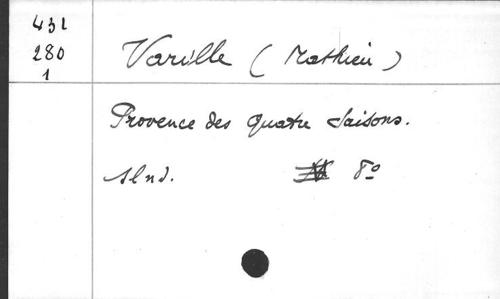 431
280
1
Varille (Mathieu)
Provence des quatre saisons.
slnd. 8º